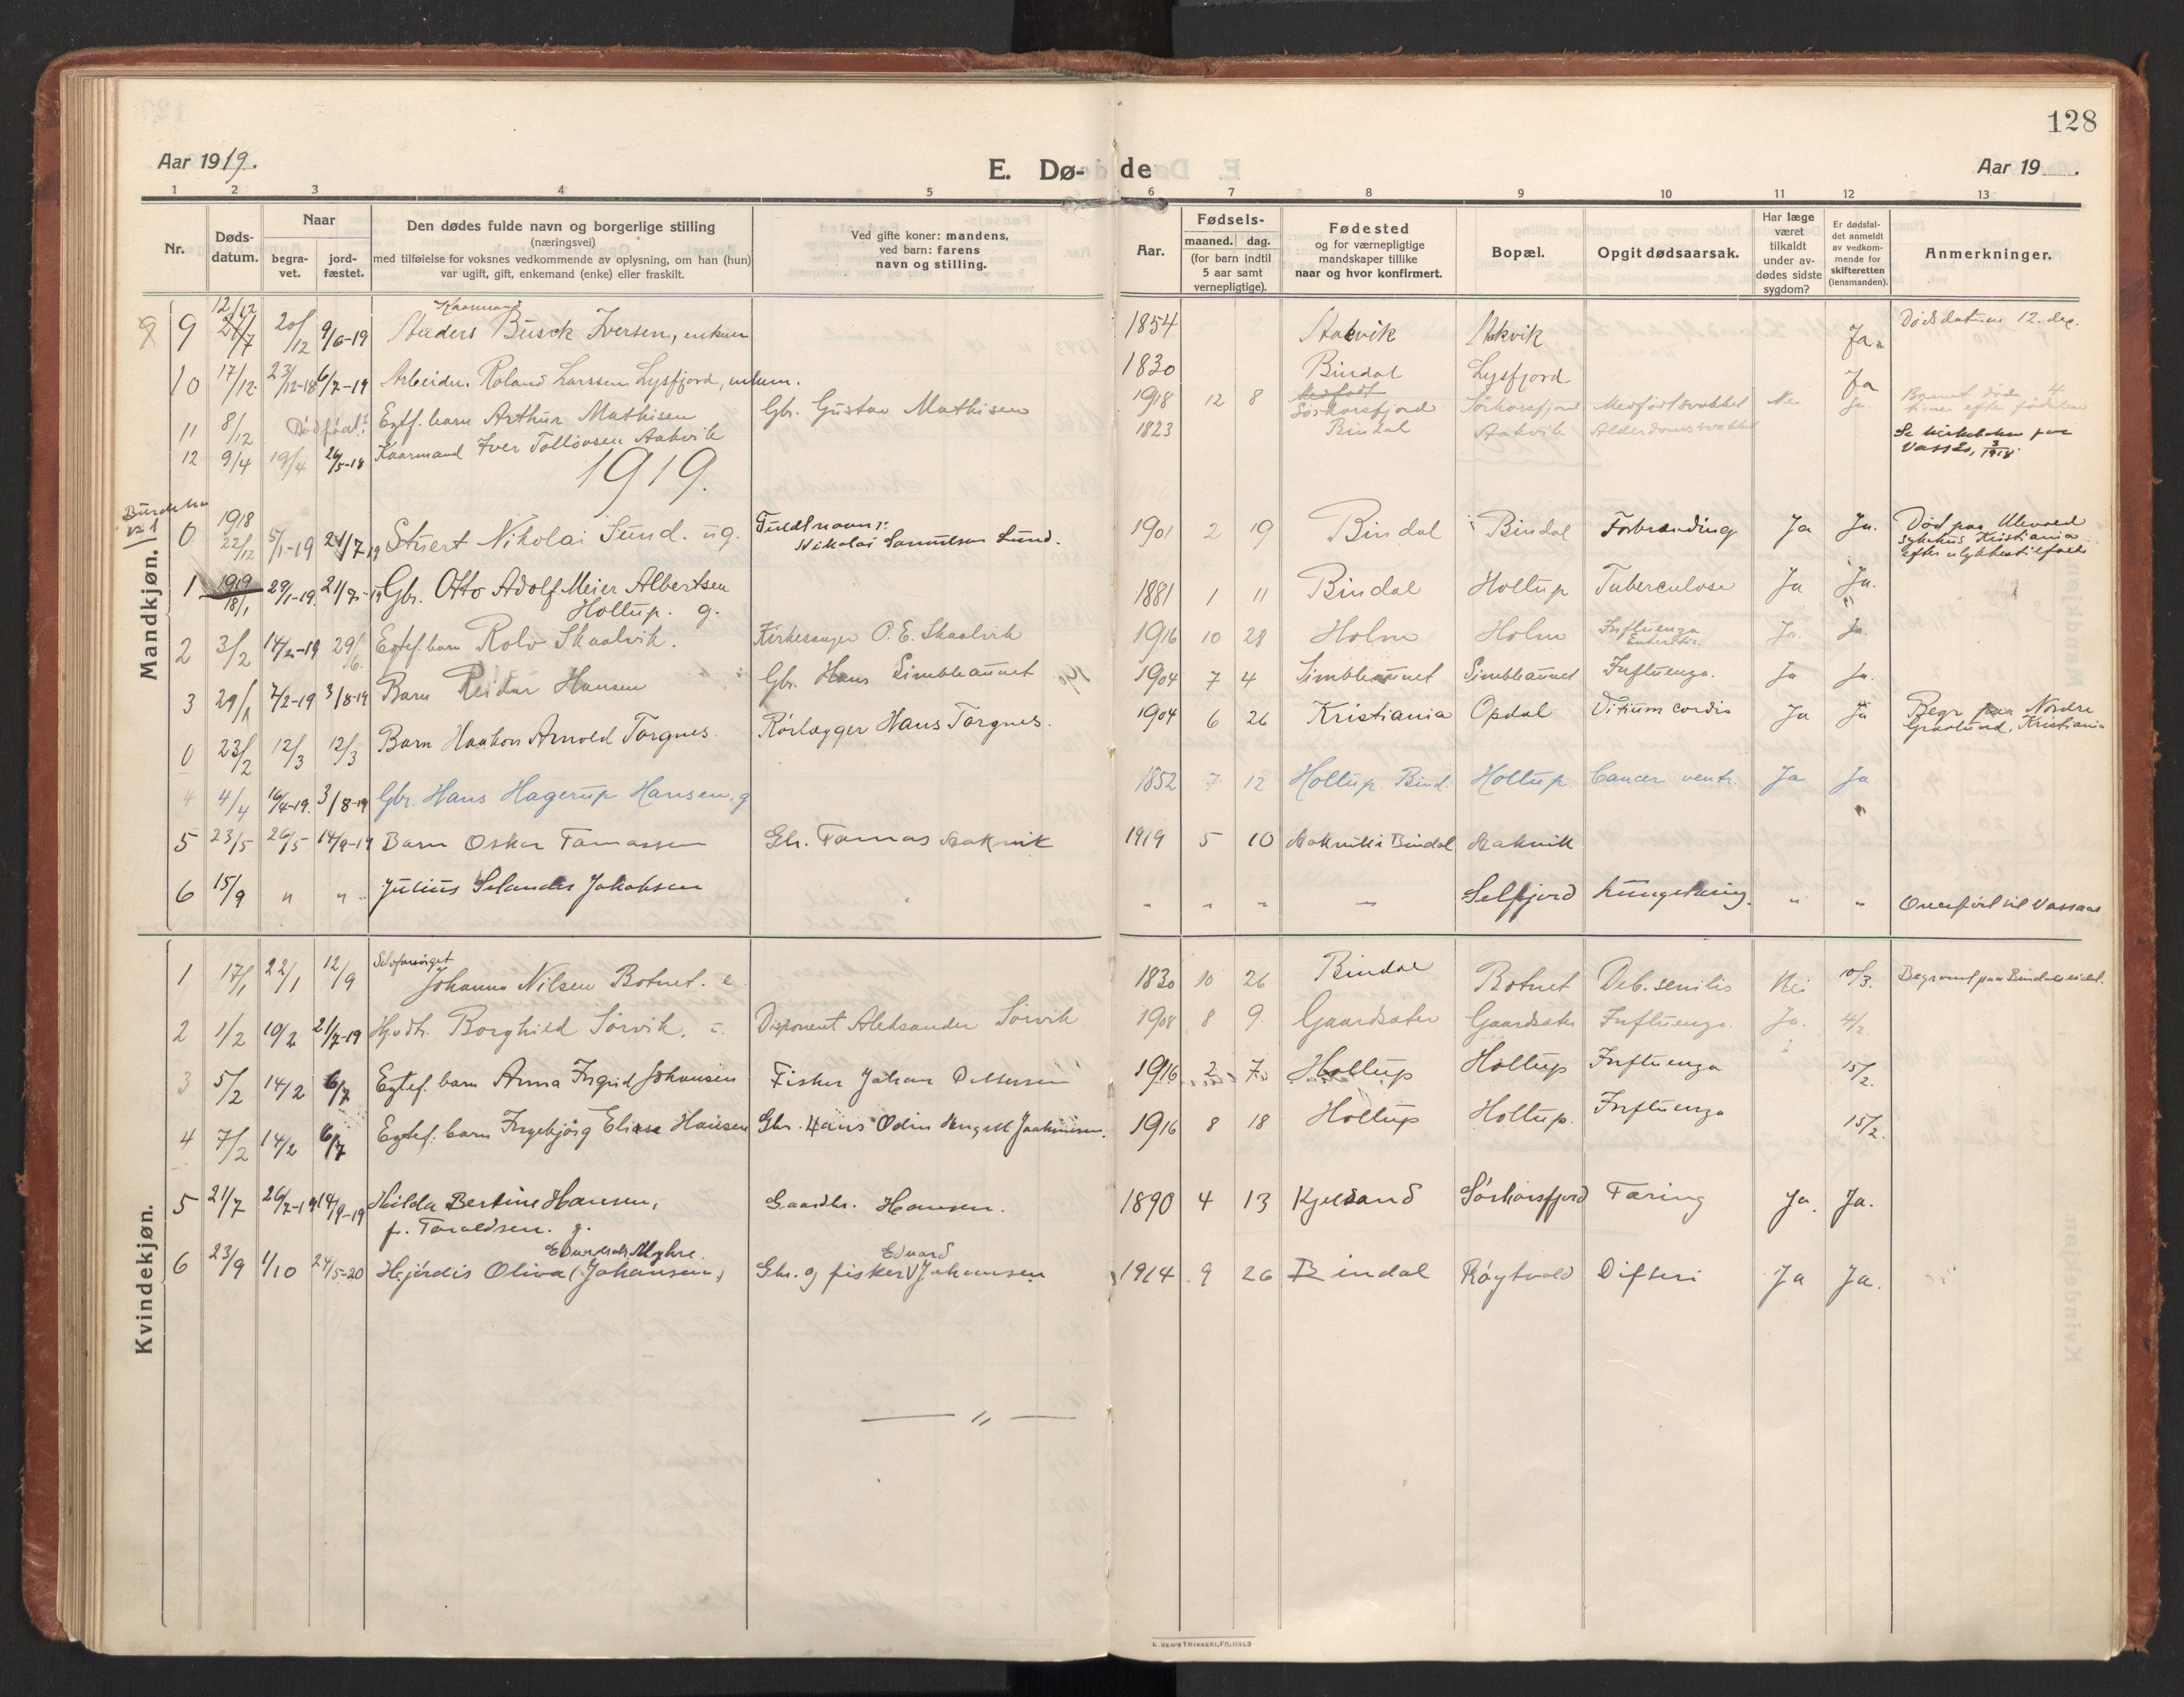 128
Aar 1919.
E. Dø-
de
Aar 19 .
1 2 3 4 5 6 7 8 9 10 11 12 13
Nr.
Døds-
datum.
Naar
begra-
vet.
jord-
fæstet.
Den dødes fulde navn og borgerlige stilling
(næringsvei)
med tilføielse for voksnes vedkommende av oplysning, om han (hun)
var ugift, gift, enkemand (enke) eller fraskilt.
Ved gifte koner: mandens,
ved barn: farens
navn og stilling.
Aar.
Fødsels-
maaned. dag.
(for barn indtil
5 aar samt
vernepligtige).
Fødested
og for værnepligtige
mandskaper tillike
naar og hvor konfirmert.
Bopæl.
Opgit dødsaarsak.
Har læge
været
tilkaldt
under av-
dødes sidste
sygdom?
Er dødsfal-
det anmeldt
av vedkom-
mende for
skifteretten
(lensmanden).
Anmerkninger.
Mandkjøn.
9 9 12/12 20/12 9/6-19 Kaarmand
Anders Busch Iversen, enkem 1854 Aakvik Aakvik Ja. Dødsdatum 12. dec.
10 17/12 23/12-18 6/7-19 Arbeider. Roland Larssen Lysfjord, enkem. 1830 Bindal Lysfjord Ja
11 8/12 Dødfødt? Egtf. barn Arthur Mathisen Gbr. Gustav Mathisen 1918 12 8 Medfødt
Sørhorsfjord Sørhorsfjord Medfødt svakhet Nei Ja. Barnet døde 4
timer efter fødselen
12 9/4 19/4 26/5-18 Kaarmand Iver Tolløvsen Aakvik 1823 Bindal Aakvik Alderdomssvakhet Se kirkeboken for
Vassås, 3/1918.
1919.
0 1918
22/12 5/1-19 21/7 19 Stuert Nikolai Sund. ug. Fuldt navn:
Nikolai Samuelsen Sund. 1901 2 19 Bindal Bindal Forbrænding Ja Ja. Død paa Ulevold
sykehus Kristiania
efter ulykkestilfælde
1 1919
18/1 29/1-19. 21/7-19 Gbr. Otto Adolf Meier Albertsen
Holtup. g. 1881 1 11 Bindal Holtup Tuberculose Ja Ja.
2 3/2 14/2-19 29/6. Egtef. barn Rolv Skaalvik. Kirkesanger P. E. Skaalvik 1916 10 28 Holm Holm Influenza
Enteritis. Ja. Ja.
3 29/1 7/2-19 3/8-19 Barn Reidar Hansen Gbr. Hans Simblaunet 1904 7 4 Simblaunet Simblaunet Influenza. Ja Ja.
0 23/2 12/3 12/3 Barn Haakon Arnold Torgnes. Rørlægger Hans Torgnes. 1904 6 26 Kristiania Opdal Vitium cordis Ja Ja Begr. paa Nordre
Gravlund, Kristiania
4 4/4 16/4-19. 3/8-19 Gbr. Hans Hagerup Hansen. g 1852 7 12 Holtup. Bind. Holtup. Cancer ventr. Ja Ja.
5 23/5 26/5 14/9-19 Barn Oskar Tomassen Gbr. Tomas Aakvik 1919 5 10 Aakvik i Bindal Aakvik
6 15/9 " " Julius Selander Jakobsen " " " " Selfjord Lungetæring. " " Overført til Vassaas
Kvindekjøn.
1 17/1 22/1 12/9 Selvforsørget
Johanna Nilsen Botnet. e. 1830 10 26 Bindal Botnet Deb. senilis Nei 10/3. Begravet paa Bindalseidet.
2 1/2 10/2 21/7-19 Hjvdtr. Borghild Sørvik. u. Disponent Aleksander Sørvik 1908 8 9. Gaardsæter Gaardsæter Influenza. Ja. 4/2
3 5/2 14/2 6/7 Egtef. barn Anna Ingrid Johansen Fisker Johan 1916 2 7 Holtup Holtup Influenza 15/2.
4 7/2 14/2 6/7 Egtef. barn Ingebjørg Elise Hansen Gbr. Hans Odin 1916 8 18 Holtup Holtup. Influenza 15/2.
5 21/7 26/7-19 14/9-19 Hilda Bertine Hansen,
f. Toraldsen. g. Gaardbr. Hansen. 1890 4 13 Kjelsand Sørhorsfjord Tæring Ja. Ja.
6 23/9 1/10 24/5-20 Edvardsdtr Myhre.
Hjørdis Oliva (Johansen) Edvard
Gbr. og fisker V Johansen 1914 9 26 Bindal Røytvold Difteri Ja Ja.
— " —